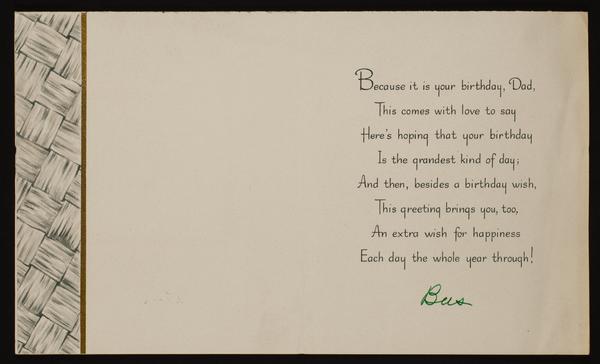 Because it is your birthday, Dad,
This comes with love to say
Here's hoping that your birthday
Is the grandest kind of day;
And then, besides a birthday wish,
This greeting brings you, too,
An extra wish for happiness
Each day the whole year through!
Bus